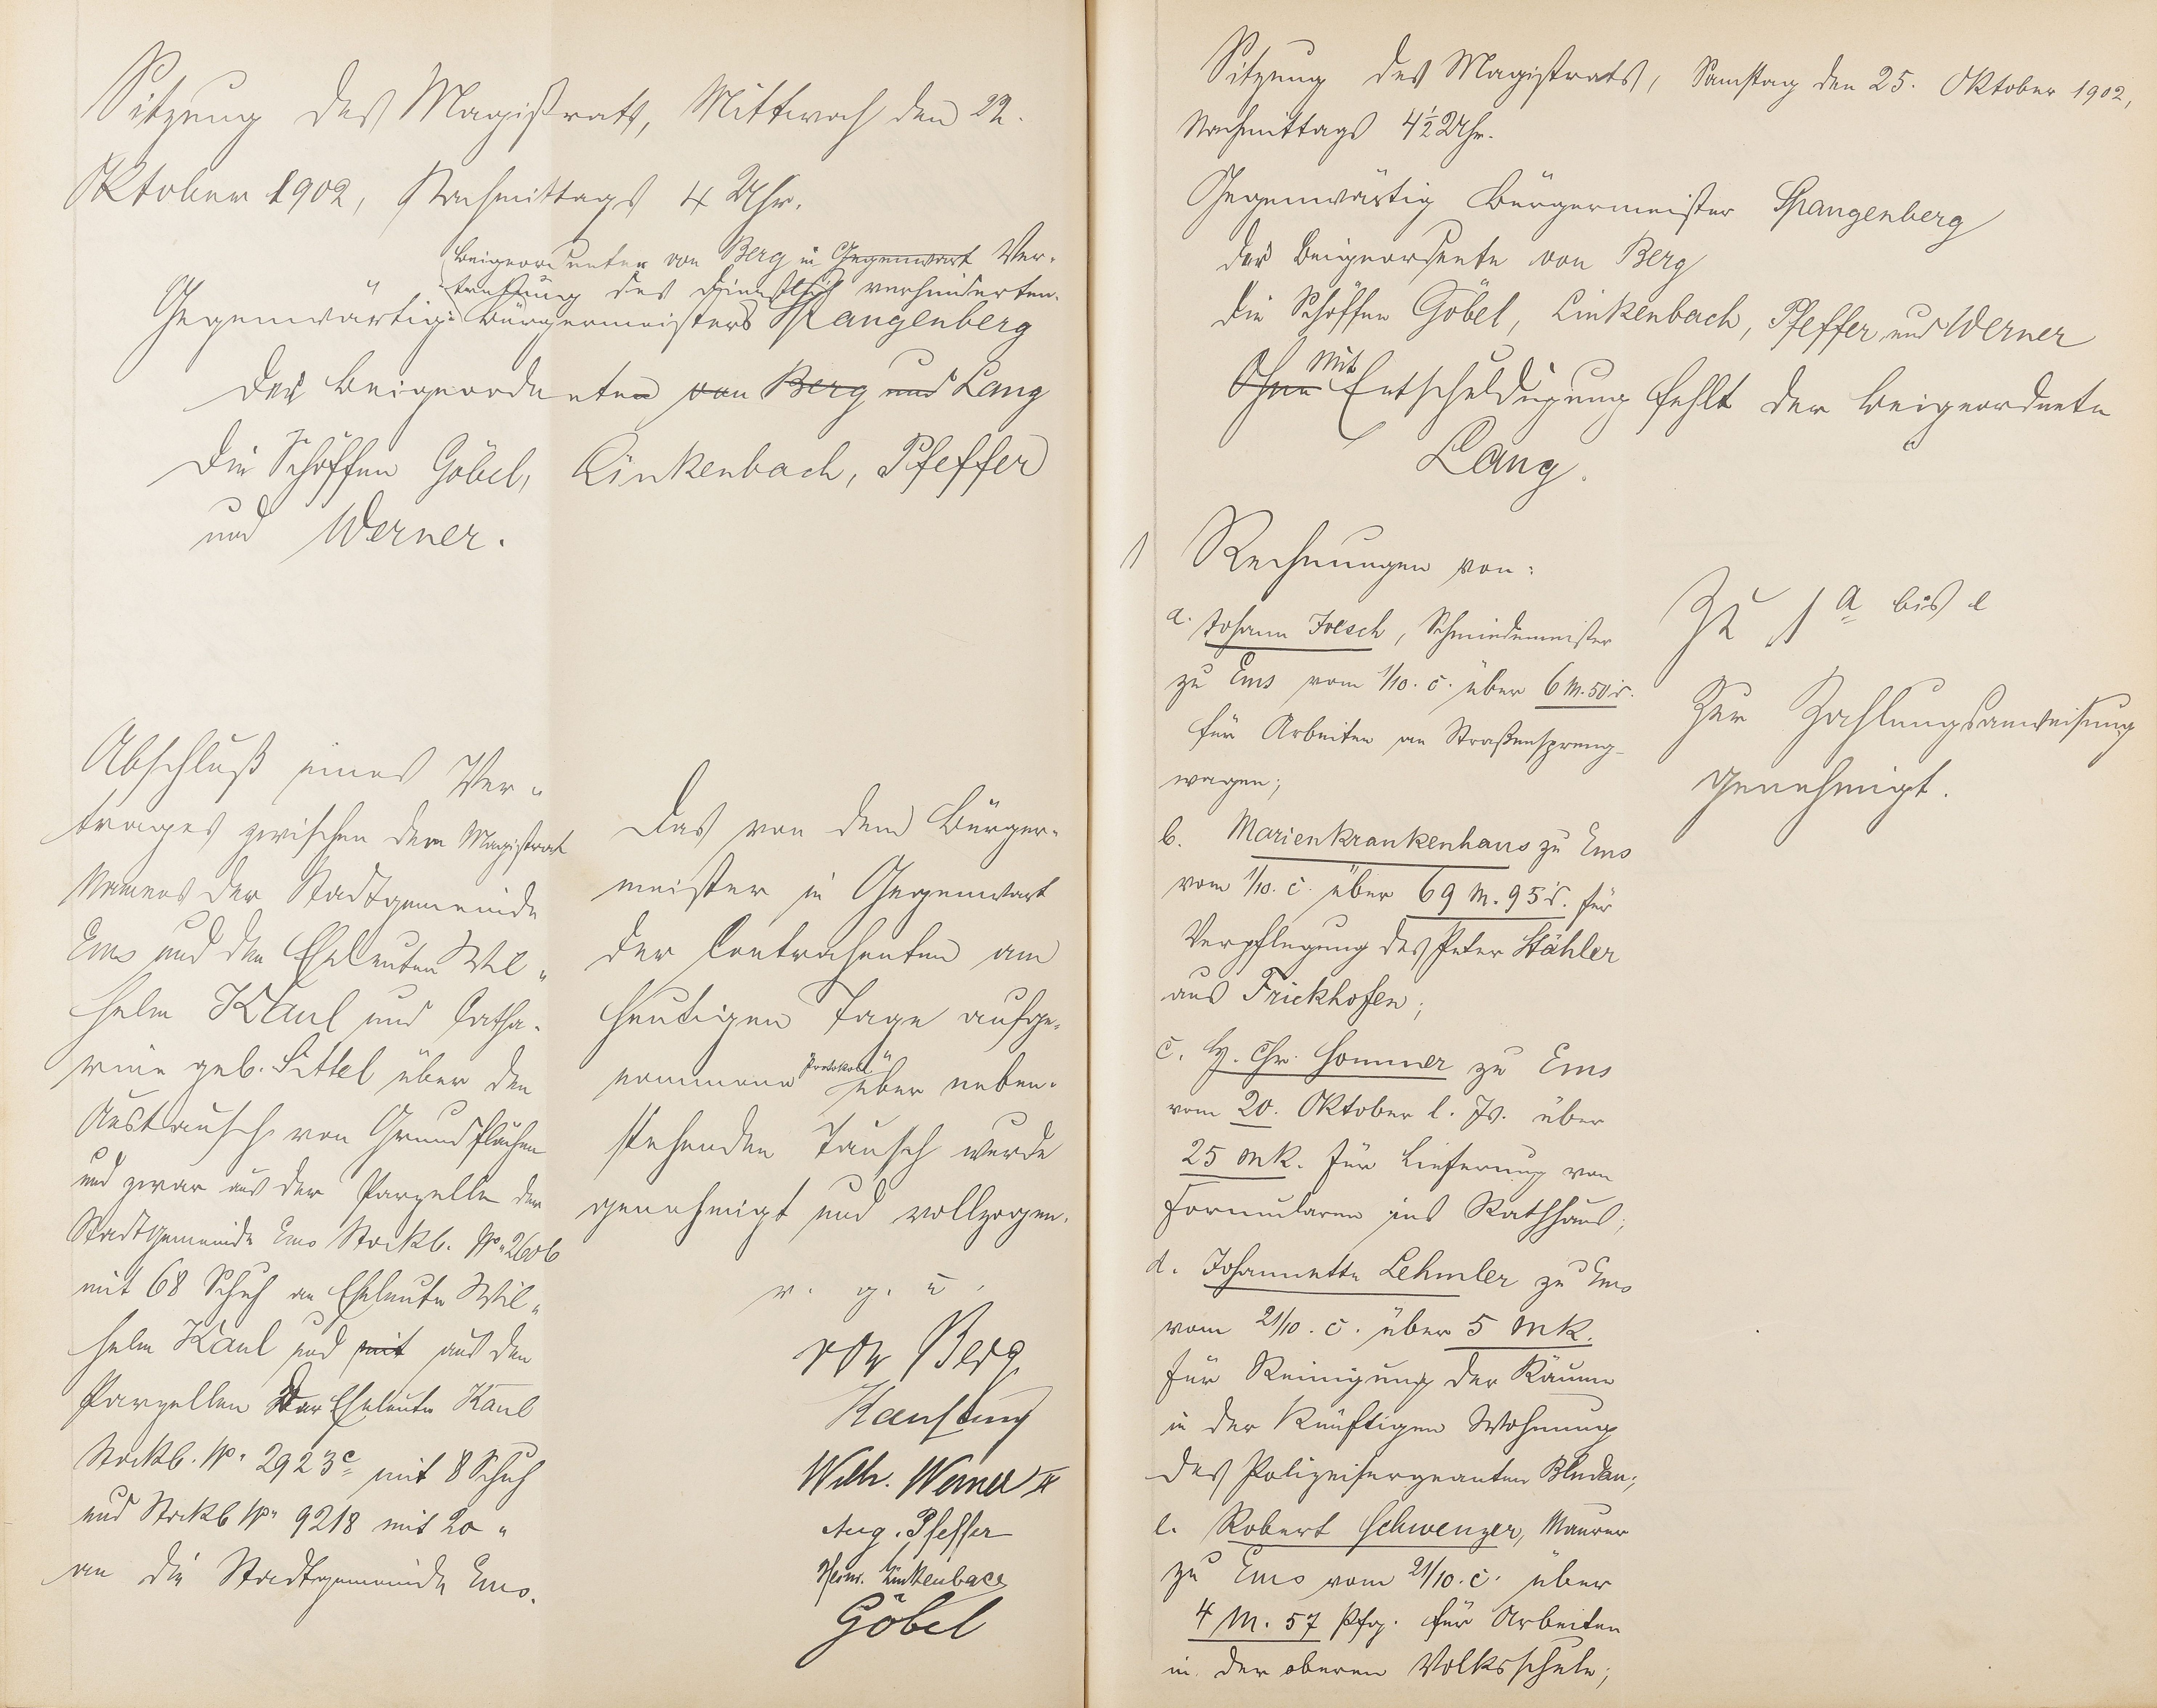 Sitzung des Magistrats, Mittwoch den 22.
Oktober 1902, Nachmittags 4 Uhr.
Beigeordneter von Berg in Gegenwart Ver-
tretung des dienstlich verhinderten
Gegenwärtig: Bürgermeisters Spangenberg
Der Beigeordneten von Berg und Lang
Die Schöffen Göbel, Linkenbach, Pfeffer
und Werner.
Abschluß eines Ver-
trages zwischen dem Magistrat
Namens der Stadtgemeinde
Ems und den Eheleuten Wil-
helm Kaul und Catha-
rine geb. Sittel über den
Austausch von Grundflächen
und zwar aus der Parzelle der
Stadtgemeinde Ems Stockb. No. 2606
mit 68 Schuh an Eheleute Wil-
helm Kaul und mit aus den
Parzellen der Eheleute Kaul
Stockb. No. 2923c mit 8 Schuh
und Stockb No. 9218 mit 20 "
an die Stadtgemeinde Ems.
Das von dem Bürger-
meister in Gegenwart
der Contrahenten am
heutigen Tage aufge-
nommene Protokoll über neben-
stehenden Tausch wurde
genehmigt und vollzogen.
v. g. u.
von Berg
Wilh. Werner II
Aug. Pfeffer
Herm. Linkenbach
Göbel
Sitzung des Magistrats, Samstag den 25. Oktober 1902,
Nachmittags 4½ Uhr.
Gegenwärtig Bürgermeister Spangenberg
der Beigeordnete von Berg
die Schöffen Göbel, Linkenbach, Pfeffer und Werner
Ohne Mit Entschuldigung fehlt der Beigeordnete
Lang.
1 Rechnungen von:
a. Johann Joesch, Schmiedemeister
zu Ems vom 1/10. c. über 6 M. 50 d.
für Arbeiten an Straßenspreng-
wagen;
b. Marienkrankenhaus zu Ems
vom 1/10. c. über 69 M. 95 d. für
Verpflegung des Peter Stähler
aus Frickhofen;
c. H. Chr. Sommer zu Ems
vom 20. Oktober l. Js. über
25 Mk. für Lieferung von
Formularen ins Rathhaus;
d. Johannette Lehmler zu Ems
vom 21/10. c. über 5 Mk.
für Reinigung der Räume
in der künftigen Wohnung
des Polizeisergeanten Bludau;
e. Robert Schwenzer, Maurer
zu Ems vom 21/10. c. über
4 M. 57 Pfg. für Arbeiten
in der oberen Volksschule;
Zu 1 a bis e
Zur Zahlungsanweisung
genehmigt.